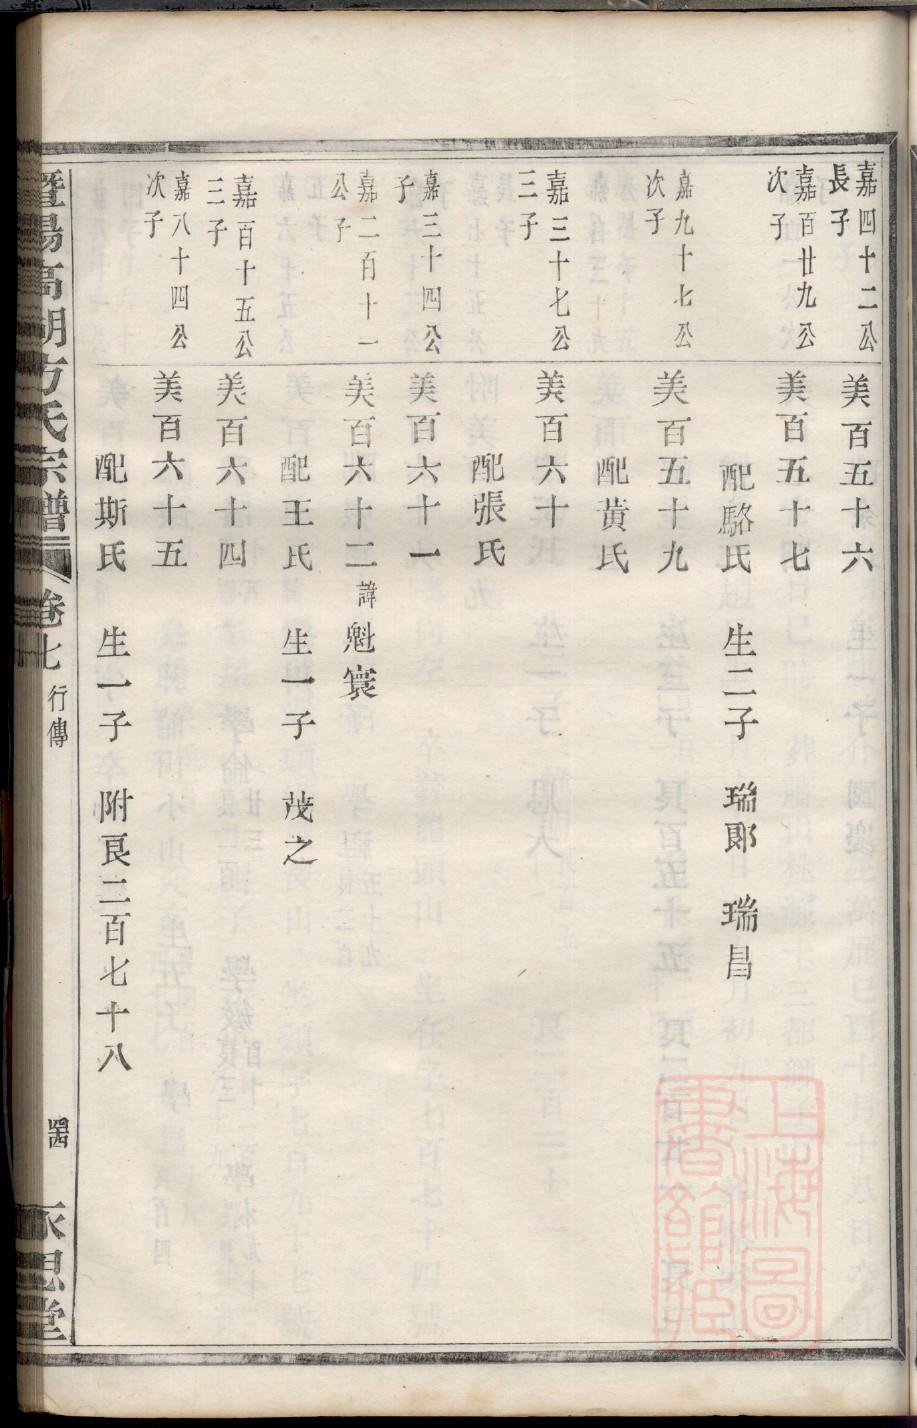 嘉四十二公
長子
美百五十六
嘉百廿九公
次子
美百五十七
配駱氏 生二子 瑞郎 瑞昌
嘉九十七公
次子
美百五十九
配黃氏
嘉三十七公
三子
美百六十
配張氏
嘉三十四公
子
美百六十一
嘉二百十一
公子
美百六十二 諱魁寰
配王氏 生一子 茂之
嘉百十五公
三子
美百六十四
嘉八十四公
次子
美百六十五
配斯氏 生一子 附良二百七十八
暨陽高湖方氏宗譜 卷七 行傳 永思堂
上海圖書館藏